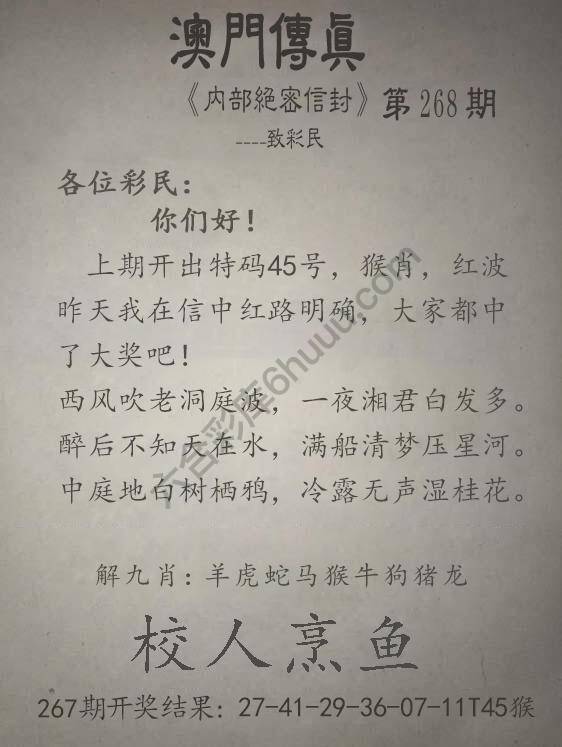 澳門傳真
《内部絕密信封》第268期
----致彩民
各位彩民：
你们好！
上期开出特码45号，猴肖，红波
昨天我在信中红路明确，大家都中
了大奖吧！
西风吹老洞庭波，一夜湘君白发多。
醉后不知天在水，满船清梦压星河。
中庭地白树栖鸦，冷露无声湿桂花。
解九肖：羊虎蛇马猴牛狗猪龙
校人烹鱼
267期开奖结果：27-41-29-36-07-11T45猴
六合彩库6huuu.com